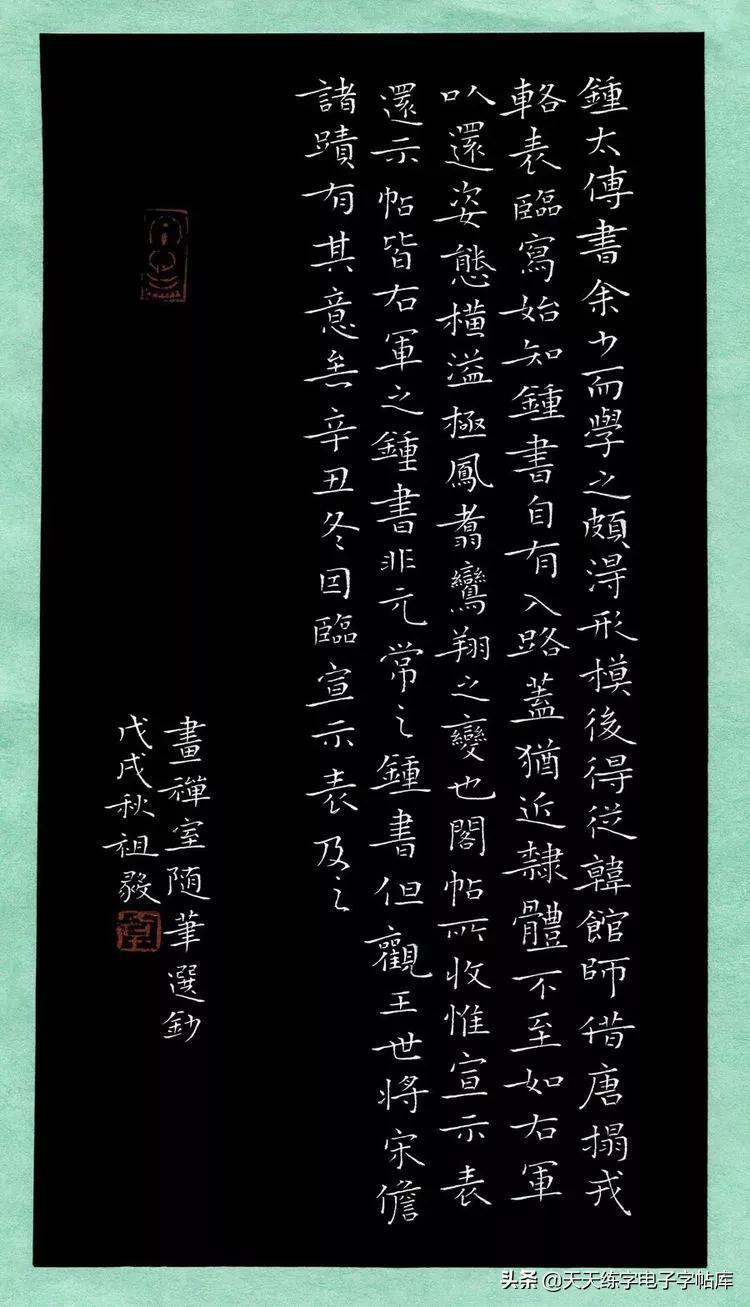 鍾太傅書余少而學之頗淂形模後得从韓館師借唐搨戎
輅表臨寫始知鍾書自有入路蓋猶近隸體不至如右軍
㕥還姿態横溢極鳳翥鸞翔之變也閣帖所收惟宣示表
還示帖皆右軍之鍾書非元常之鍾書但觀王世將宋儋
諸蹟有其意矣辛丑冬因臨宣示表及之
畫禪室随筆選鈔
戊戌秋祖毅
头条 @天天练字电子字帖库